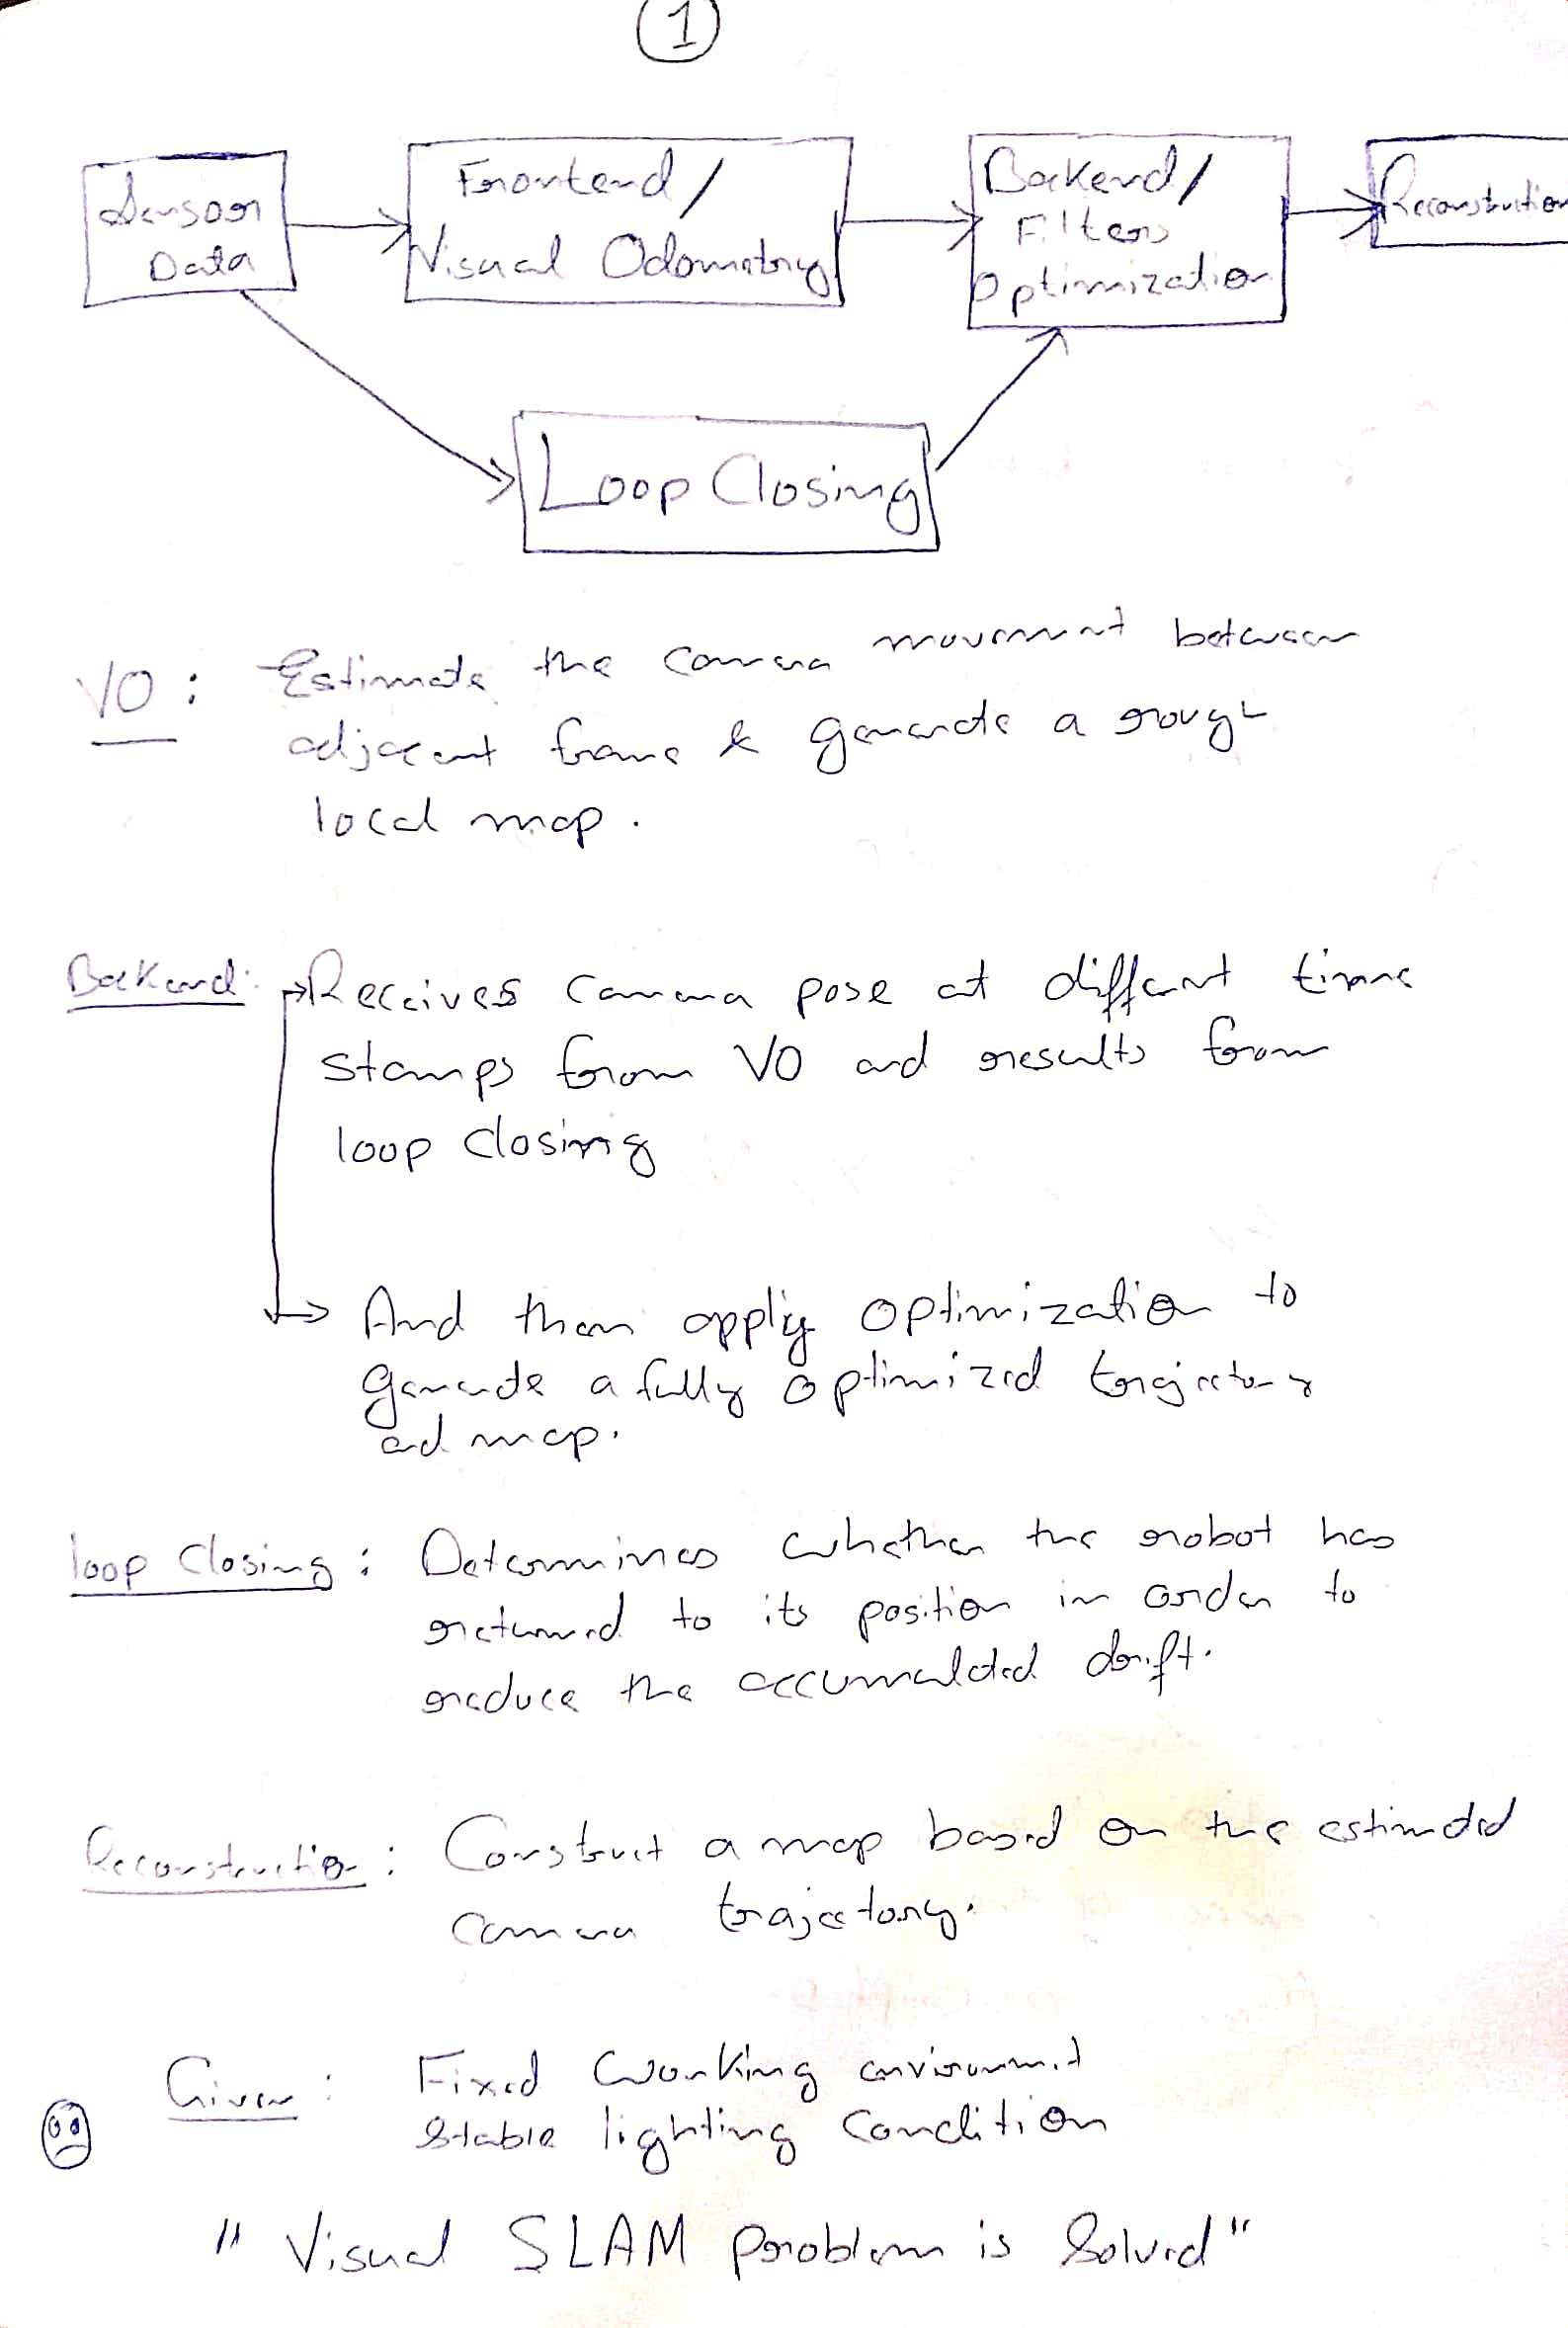 1
Sensor
Data
Frontend/
Visual Odometry
Backend/
Filters
Optimization
Reconstruction
Loop Closing
VO : Estimate the camera movement between
adjacent frame & generate a rough
local map.
Backend: Receives camera pose at diffent time
stamps from VO and results from
loop closing
And then apply optimization to
generate a fully optimized trajectory
and map.
loop closing : Determines whether the robot has
returned to its position in order to
reduce the accumulated drift.
Reconstruction : Construct a map based on the estimated
camera trajectory.
Given : Fixed working environment
Stable lighting condition
" Visual SLAM Problem is Solved "